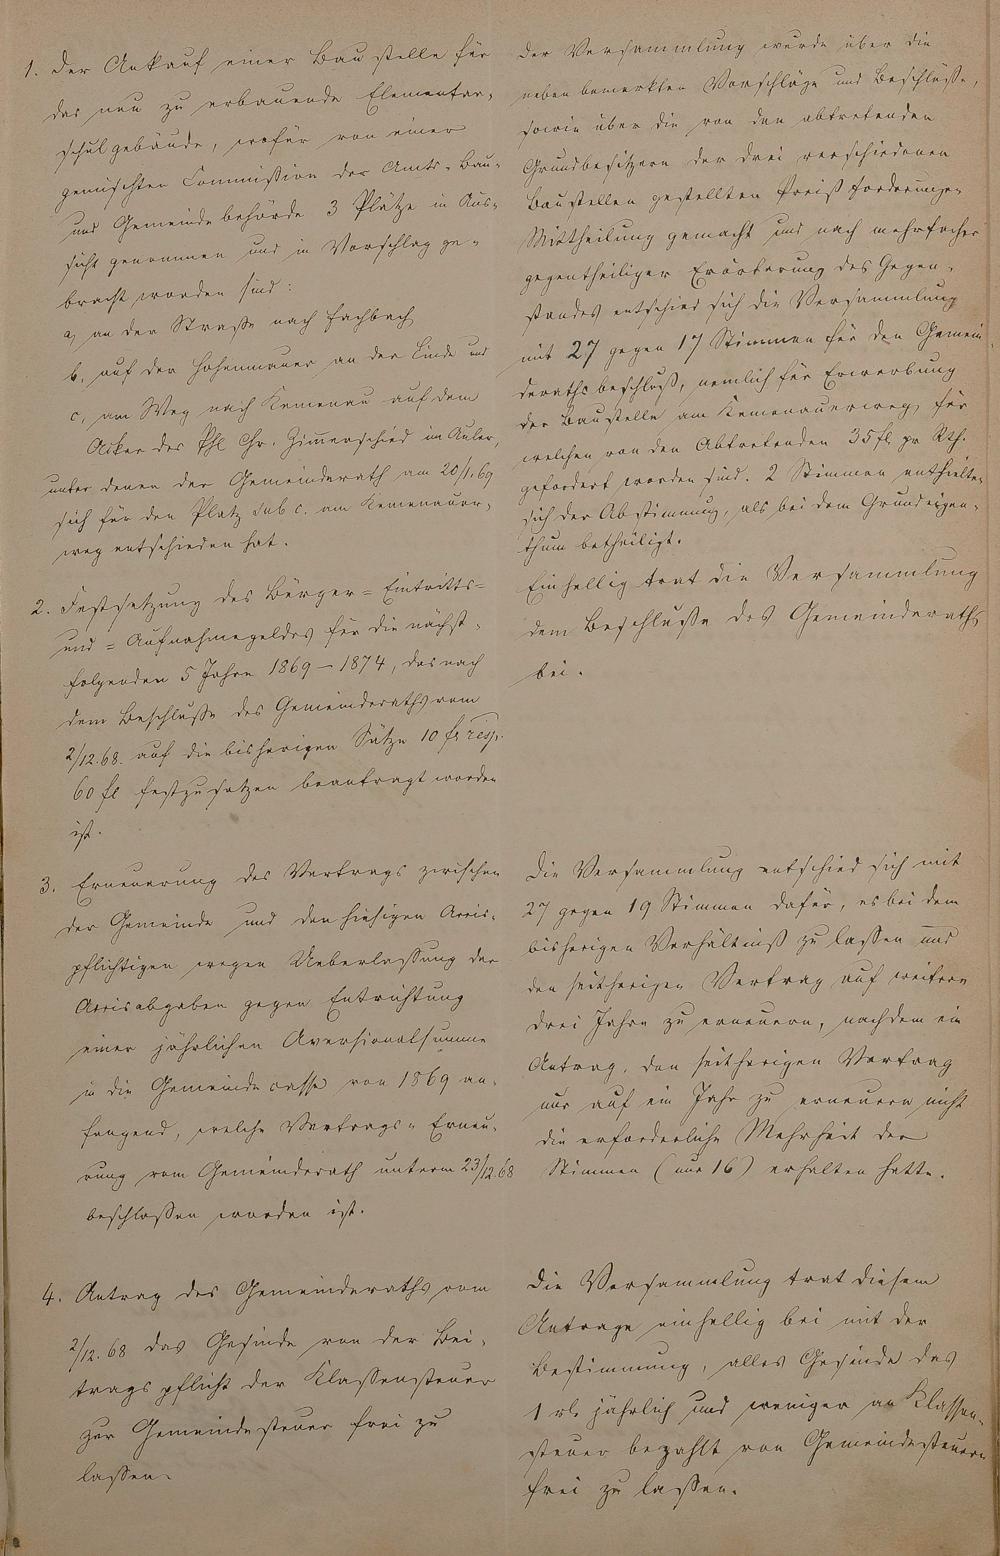 1. Der Ankauf einer Baustelle für
das neu zu erbauende Elementar-
schulgebäude, wofür von einer
gemischten Commißion der Amts- Bau-
und Gemeindebehörde 3 Plätze in Aus-
sicht genommen und in Vorschlag ge-
bracht worden sind:
a, an der Straße nach Fachbach
b, auf der Hohenmauer an der Linde und
c, am Weg nach Kemenau auf dem
Acker des Phl Chr. Zimerschied im Euler,
unter denen der Gemeinderath am 20/1.69
sich für den Platz sub c. am Kemenauer-
weg entschieden hat.
2. Festsetzung des Bürger= Eintritts=
und = Aufnahmegeldes für die nächst-
folgenden 5 Jahre 1869–1874, das nach
dem Beschluße des Gemeinderaths vom
2/12.68. auf die bisherigen Sätze 10 fl resp.
60 fl festzusetzen beantragt worden
ist.
3. Erneuerung des Vertrags zwischen
der Gemeinde und den hiesigen Accis-
pflichtigen wegen Ueberlaßung der
Accisabgaben gegen Entrichtung
einer jährlichen Aversionalsumme
in die Gemeindecasse von 1869 an-
fangend, welche Vertrags- Erneu-
rung vom Gemeinderath unterm 23/12.68
beschloßen worden ist.
4. Antrag des Gemeinderaths vom
2/12.68 das Gesinde von der Bei-
tragspflicht der Klaßensteuer
zur Gemeindesteuer frei zu
laßen.
Der Versammlung wurde über die
neben bemerkten Vorschläge und Beschlüße,
sowie über die von den abtretenden
Grundbesitzern der drei verschiedenen
Baustellen gestellten Preißforderungen
Mittheilung gemacht und nach mehrfacher
gegentheiliger Erörterung des Gegen-
standes entschied sich die Versammlung
mit 27 gegen 17 Stimmen für den Gemein-
derathsbeschluß, nemlich für Erwerbung
der Baustelle am Kemenauerweg, für
welchen von den Abtretenden 35 fl pr Rth.
gefordert worden sind. 2 Stimmen enthielten
sich der Abstimmung, als bei dem Grundeigen-
thum betheiligt.
Einhellig trat die Versammlung
dem Beschluße des Gemeinderaths
bei.
Die Versammlung entschied sich mit
27 gegen 19 Stimmen dafür, es bei dem
bisherigen Verhältniß zu laßen und
den seitherigen Vertrag auf weitere
drei Jahre zu erneuern, nachdem ein
Antrag, den seitherigen Vertrag
nur auf ein Jahr zu erneuern nicht
die erforderliche Mehrheit der
Stimmen (nur 16) erhalten hatte.
Die Versammlung trat diesem
Antrage einhellig bei mit der
Bestimmung, alles Gesinde das
1 rl. jährlich und weniger an Klassen-
steuer bezahlt von Gemeindesteuern
frei zu laßen.